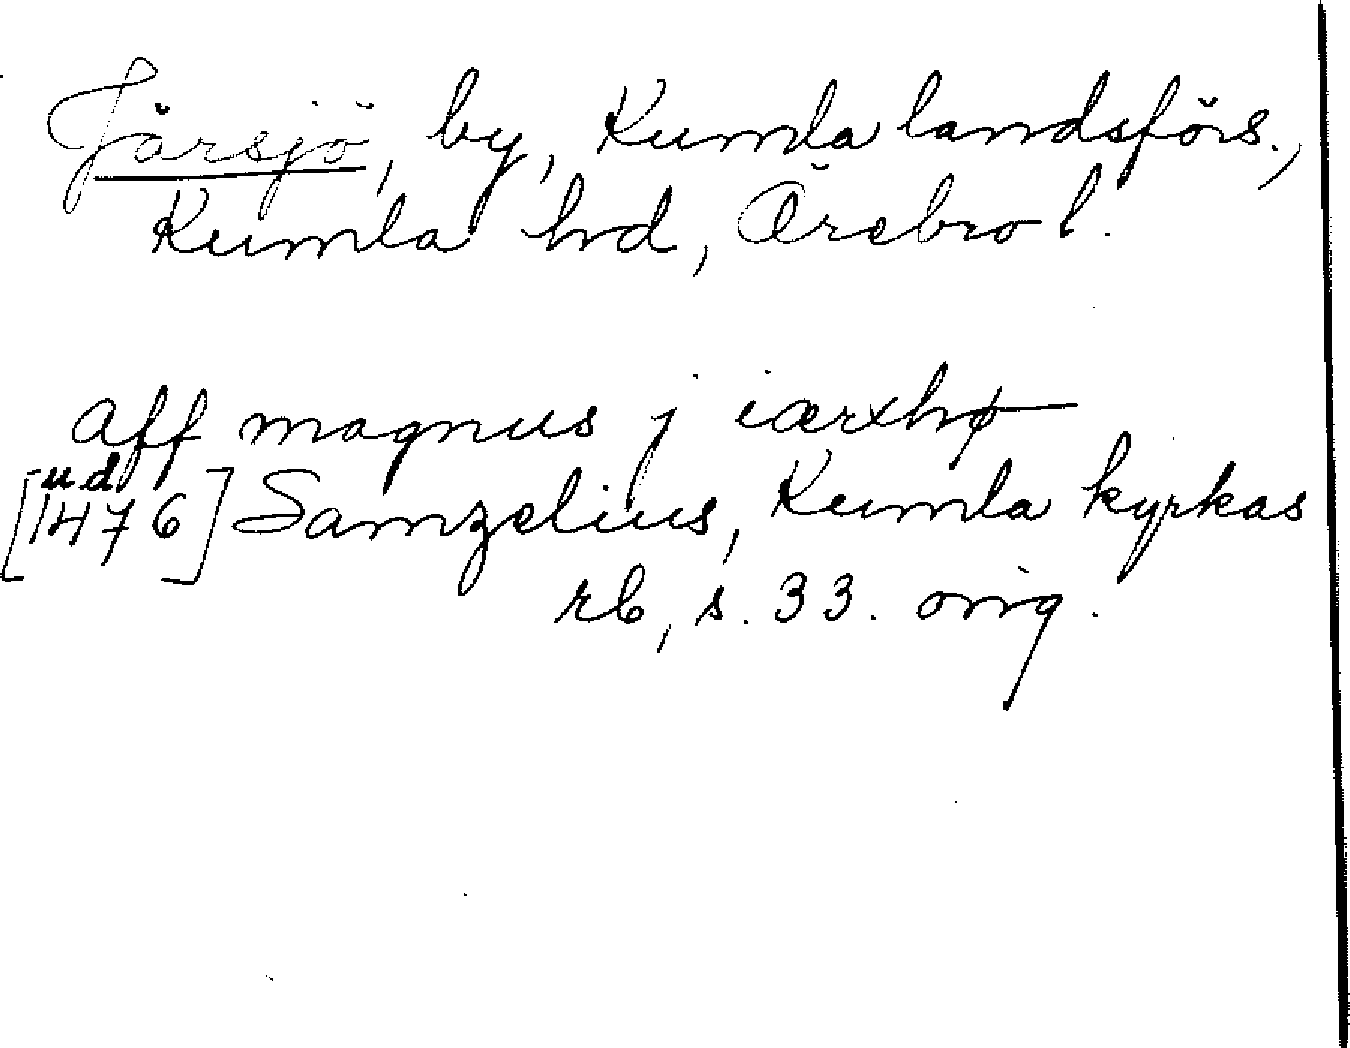 Järsjö, by, Kumla landsförs.,
Kumla hd, Örebro l.
aff magnus j iærxhø
[u.d. 1476] Samzelius, Kumla kyrkas
rb, s. 33. orig.